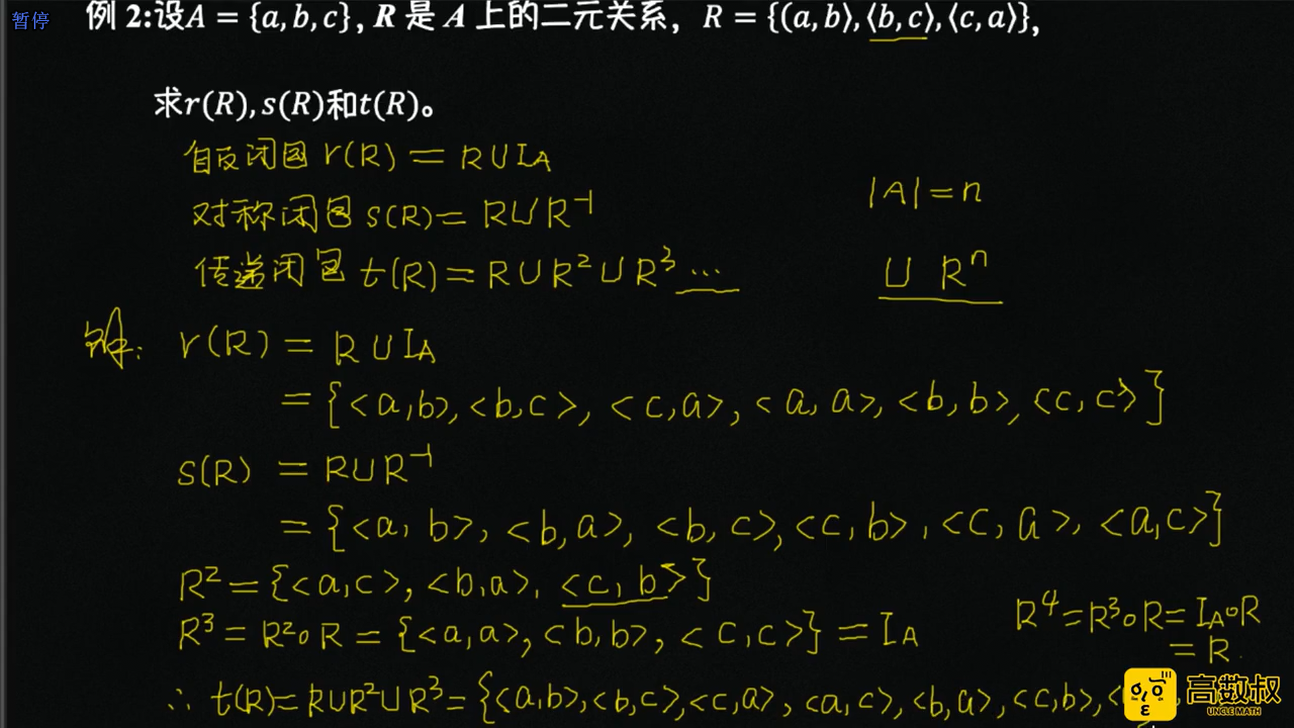 暂停
例 2:设A = {a, b, c}, R 是 A 上的二元关系, R = {(a, b⟩,⟨b, c⟩,⟨c, a⟩},
求r(R), s(R)和t(R)。
自反闭包 r(R) = R∪I_A
对称闭包 s(R) = R∪R⁻¹
|A| = n
传递闭包 t(R) = R∪R²∪R³ ...
∪ Rⁿ
解: r(R) = R∪I_A
= {<a,b>, <b,c>, <c,a>, <a,a>, <b,b>, <c,c>}
s(R) = R∪R⁻¹
= {<a,b>, <b,a>, <b,c>, <c,b>, <c,a>, <a,c>}
R² = {<a,c>, <b,a>, <c,b>}
R³ = R²∘R = {<a,a>, <b,b>, <c,c>} = I_A
R⁴ = R³∘R = I_A∘R
= R.
∴ t(R) = R∪R²∪R³ = {<a,b>, <b,c>, <c,a>, <a,c>, <b,a>, <c,b>, <
高数叔
UNCLE MATH